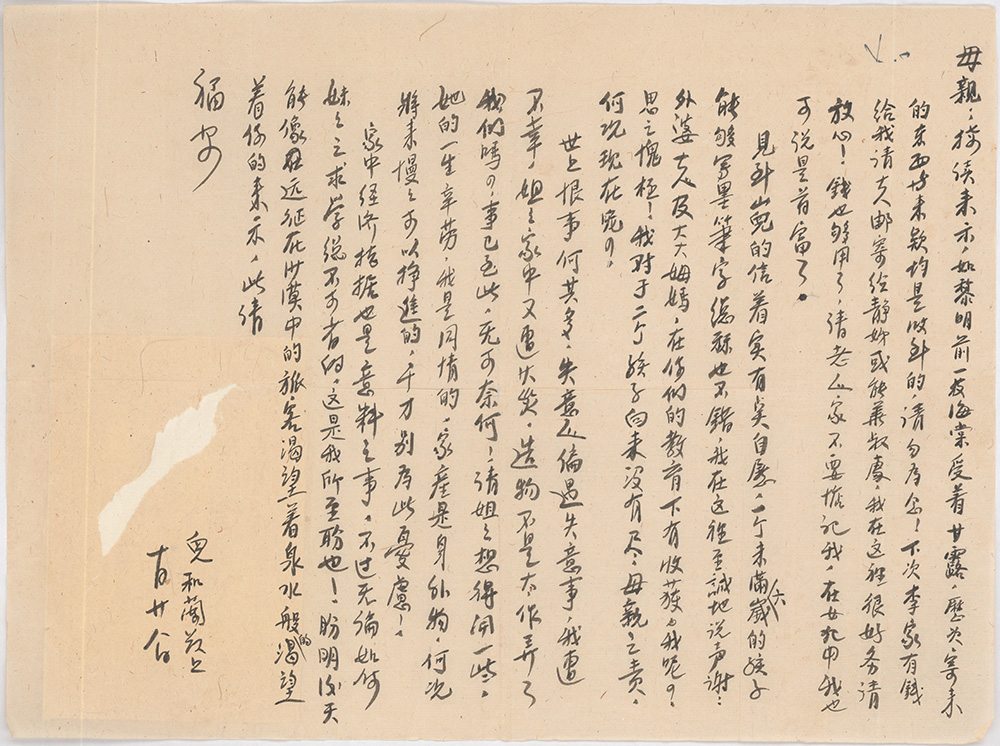 母親：接讀来示，如黎明前一枝海棠受着甘露，歷次寄来
的东西与来款均是收到的，請勿为念！下次李家有錢
给我請大人邮寄给静妳或能兼叔處，我在这裡很好务請
放心！錢也够用了，請老人家不要惦记我，在女犯中我也
可说是首富了。
見到山兒的信着实有矣自慰，一个未满六歲的孩子
能够写墨筆字總祘也不錯，我在这裡至誠地说声謝：
外婆大人及大大姆媽，在你们的教育下有收獲，我呢？
思之愧极！我对于二个孩子向来没有尽母親之责，
何况现在呢？
世上恨事何其多，失意人偏遇失意事，我遭
不幸，姐之家中又遭火災，造物不是太作弄了
我们嗎？事已至此，无可奈何，請姐之想得開一些，
她的一生辛劳，我是同情的，家產是身外物，何况
將来慢之可以掙進的，千万别为此憂慮！
家中经济拮据也是意料之事，不过无論如何
妹之之求学總不可省的，这是我所至盼也！盼明后天
能像远征在沙漠中的旅客渴望着泉水般的渴望
着你的来示，此請
福安
兒和蘭敬上